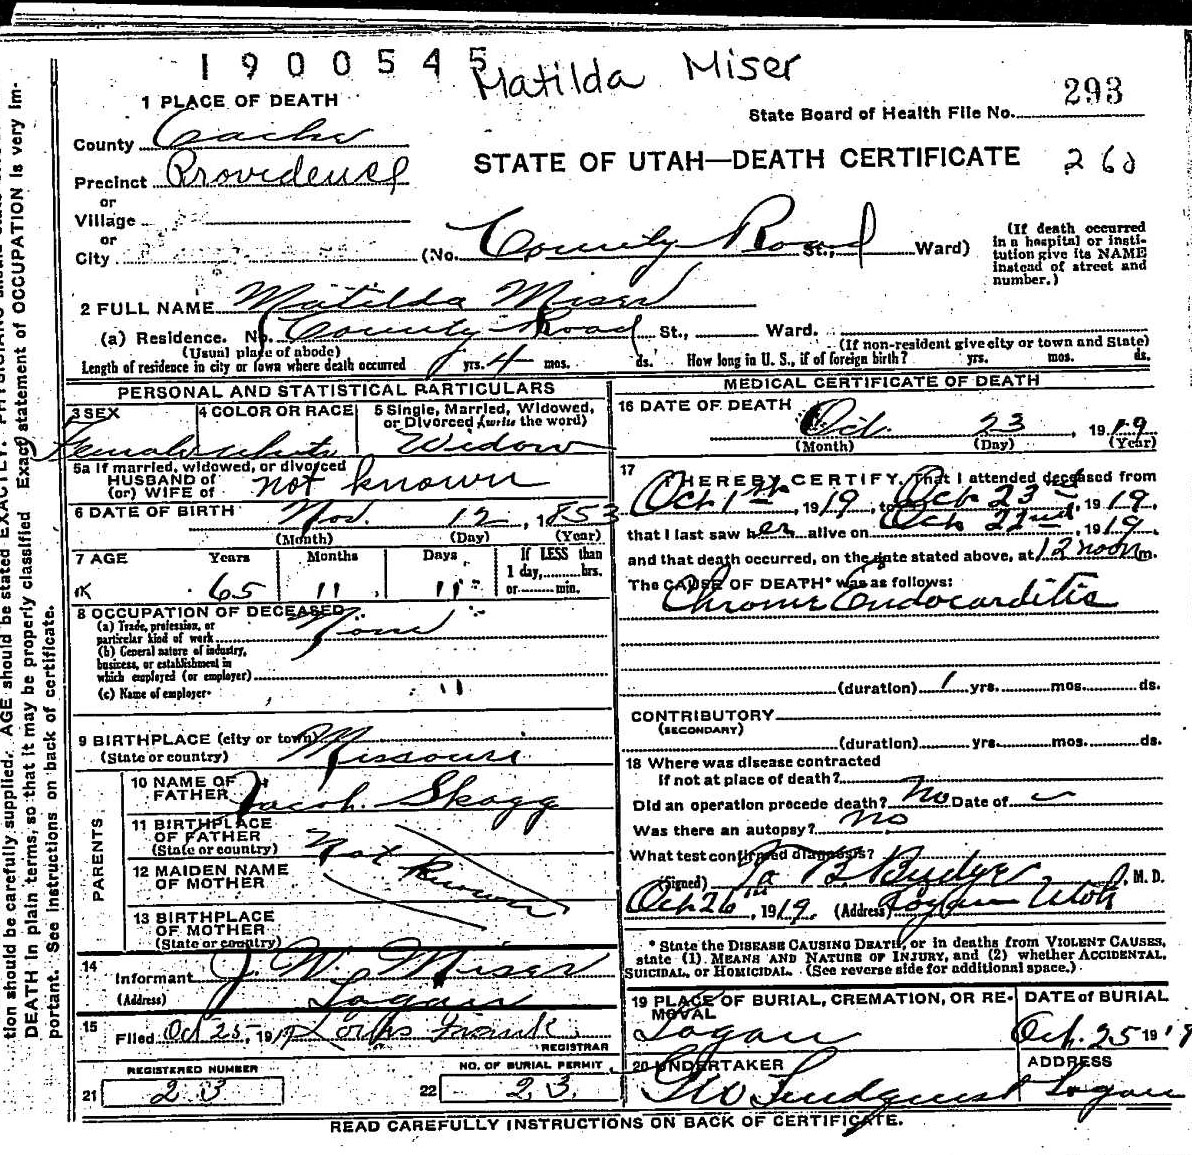 1900545
Matilda Miser
293
State Board of Health File No.
260
1 PLACE OF DEATH
County Cache
Precinct Providence
or
Village
or
City
STATE OF UTAH—DEATH CERTIFICATE
(No. County Road St., Ward)
(If death occurred
in a hospital or insti-
tution give its NAME
instead of street and
number.)
2 FULL NAME Matilda Miser
(a) Residence. No. County Road St., Ward.
(Usual place of abode)
(If non-resident give city or town and State)
Length of residence in city or town where death occurred yrs. 4 mos. ds. How long in U. S., if of foreign birth? yrs. mos. ds.
PERSONAL AND STATISTICAL PARTICULARS
3 SEX
Female
4 COLOR OR RACE
white
5 Single, Married, Widowed,
or Divorced (write the word)
Widow
5a If married, widowed, or divorced
HUSBAND of
(or) WIFE of not known
6 DATE OF BIRTH Nov. 12, 1853
(Month) (Day) (Year)
7 AGE Years Months Days
If LESS than
1 day, hrs.
or min.
65 11 11
8 OCCUPATION OF DECEASED
(a) Trade, profession, or
particular kind of work None
(b) General nature of industry,
business, or establishment in
which employed (or employer)
(c) Name of employer "
9 BIRTHPLACE (city or town)
(State or country) Missouri
PARENTS
10 NAME OF
FATHER Jacob Skagg
11 BIRTHPLACE
OF FATHER
(State or country)
Not Known
12 MAIDEN NAME
OF MOTHER
13 BIRTHPLACE
OF MOTHER
(State or country)
14
Informant J. W. Miser
(Address) Logan
15
Filed Oct 25, 1919
REGISTRAR
REGISTERED NUMBER
21 23
NO. OF BURIAL PERMIT
22 23
MEDICAL CERTIFICATE OF DEATH
16 DATE OF DEATH
Oct. 23, 1919
(Month) (Day) (Year)
17
I HEREBY CERTIFY, That I attended deceased from
Oct 1st, 1919, to Oct 23, 1919,
that I last saw her alive on Oct 22nd, 1919,
and that death occurred, on the date stated above, at 12 noon m.
The CAUSE OF DEATH* was as follows:
Chronic Endocarditis
(duration) 1 yrs. mos. ds.
CONTRIBUTORY
(SECONDARY)
(duration) yrs. mos. ds.
18 Where was disease contracted
If not at place of death?
Did an operation precede death? No Date of
Was there an autopsy? no
What test confirmed diagnosis?
(Signed) B Budge, M. D.
Oct 26th, 1919. (Address) Logan Utah
* State the DISEASE CAUSING DEATH, or in deaths from VIOLENT CAUSES,
state (1) MEANS AND NATURE OF INJURY, and (2) whether ACCIDENTAL,
SUICIDAL, OR HOMICIDAL. (See reverse side for additional space.)
19 PLACE OF BURIAL, CREMATION, OR RE-
MOVAL
Logan
DATE of BURIAL
Oct. 25 1919
20 UNDERTAKER
Lindquist
ADDRESS
Logan
READ CAREFULLY INSTRUCTIONS ON BACK OF CERTIFICATE.
tion should be carefully supplied. AGE should be stated EXACTLY.
DEATH in plain terms, so that it may be properly classified Exact statement of OCCUPATION is very im-
portant. See instructions on back of certificate.